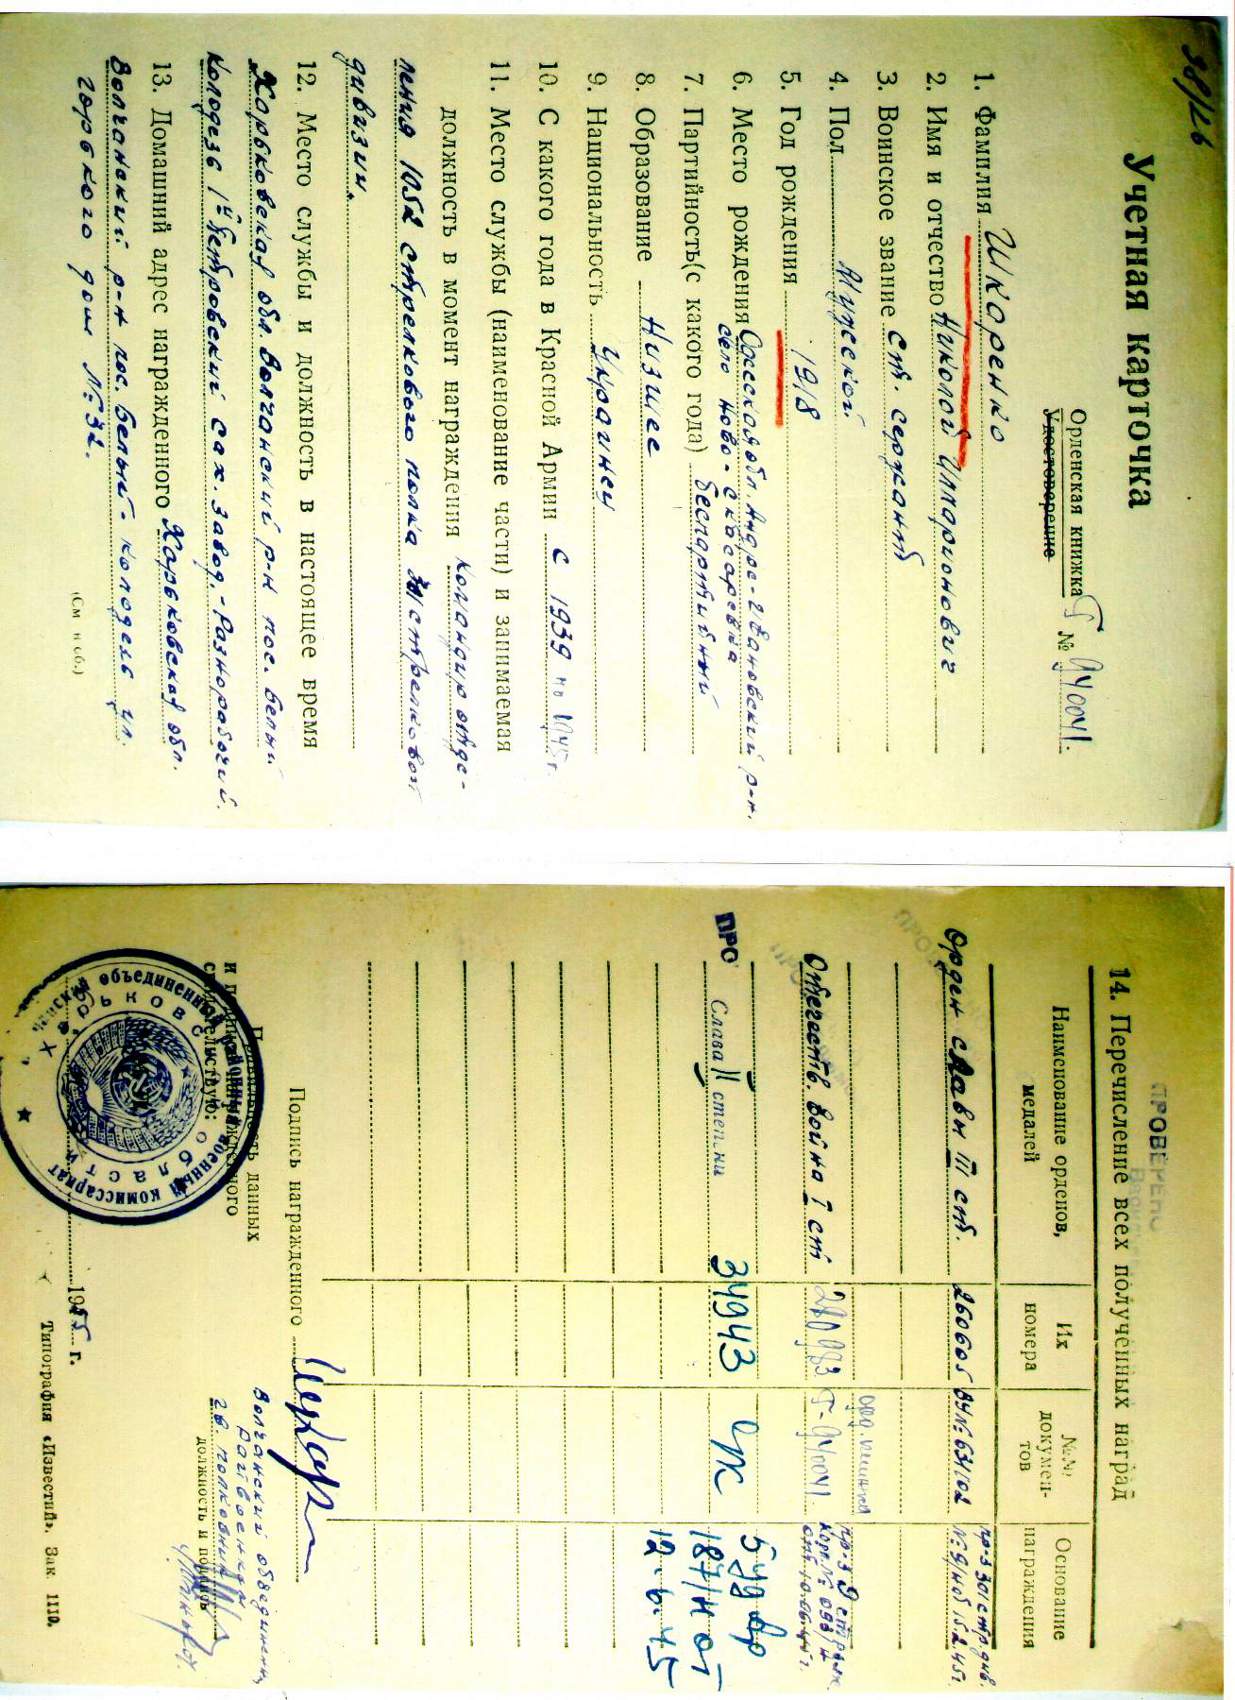 38/26
Учетная карточка
Орденская книжка Г № 940041.
Удостоверение
1. Фамилия Шкоренко
2. Имя и отчество Николой Иларионович
3. Воинское звание ст. сержант
4. Пол Мужской
5. Год рождения 1918
6. Место рождения Одесская обл. Андре-Ивановский р-н.
село Ново-Скасаревка
7. Партийность(с какого года) беспартийный
8. Образование Низшее
9. Национальность Украинец
10. С какого года в Красной Армии с 1939 по
11. Место службы (наименование части) и занимаемая
должность в момент награждения Командир отде-
ления 1052 стрелкового полка стрелковой
дивизии.
12. Место службы и должность в настоящее время
Харьковская обл. Волчанский р-н пос. Белый
Колодезь 1й Петровский сах. завод. - Разнорабочий.
13. Домашний адрес награжденного Харьковская обл.
Волчанский р-н пос. Белый-колодезь ул.
горького дом №32.
(См н об.)
ПРОВЕРЕНО
14. Перечисление всех полученных наград
Наименование орденов, медалей
Их номера
№№ документов
Основание награждения
Орден славы III ст. 260605 ВУ№631102 пр-з 301 стр. див. №9/н от 15.2.45г.
орд. книжка
Отечеств. война I ст 210983 Г-940041.
ПРО Слава II степени 34943 ОК 5 уд ар
187/н от
12.6.45
Подпись награжденного
Правильность данных
и подписи награжденного
свидетельствую:
Волчанский объединенн.
Райвоенком
гв. полковник
должность и подпись
объединенный районный военный комиссариат
Харьковской области
1955 г.
Типография «Известий». Зак. 1110.